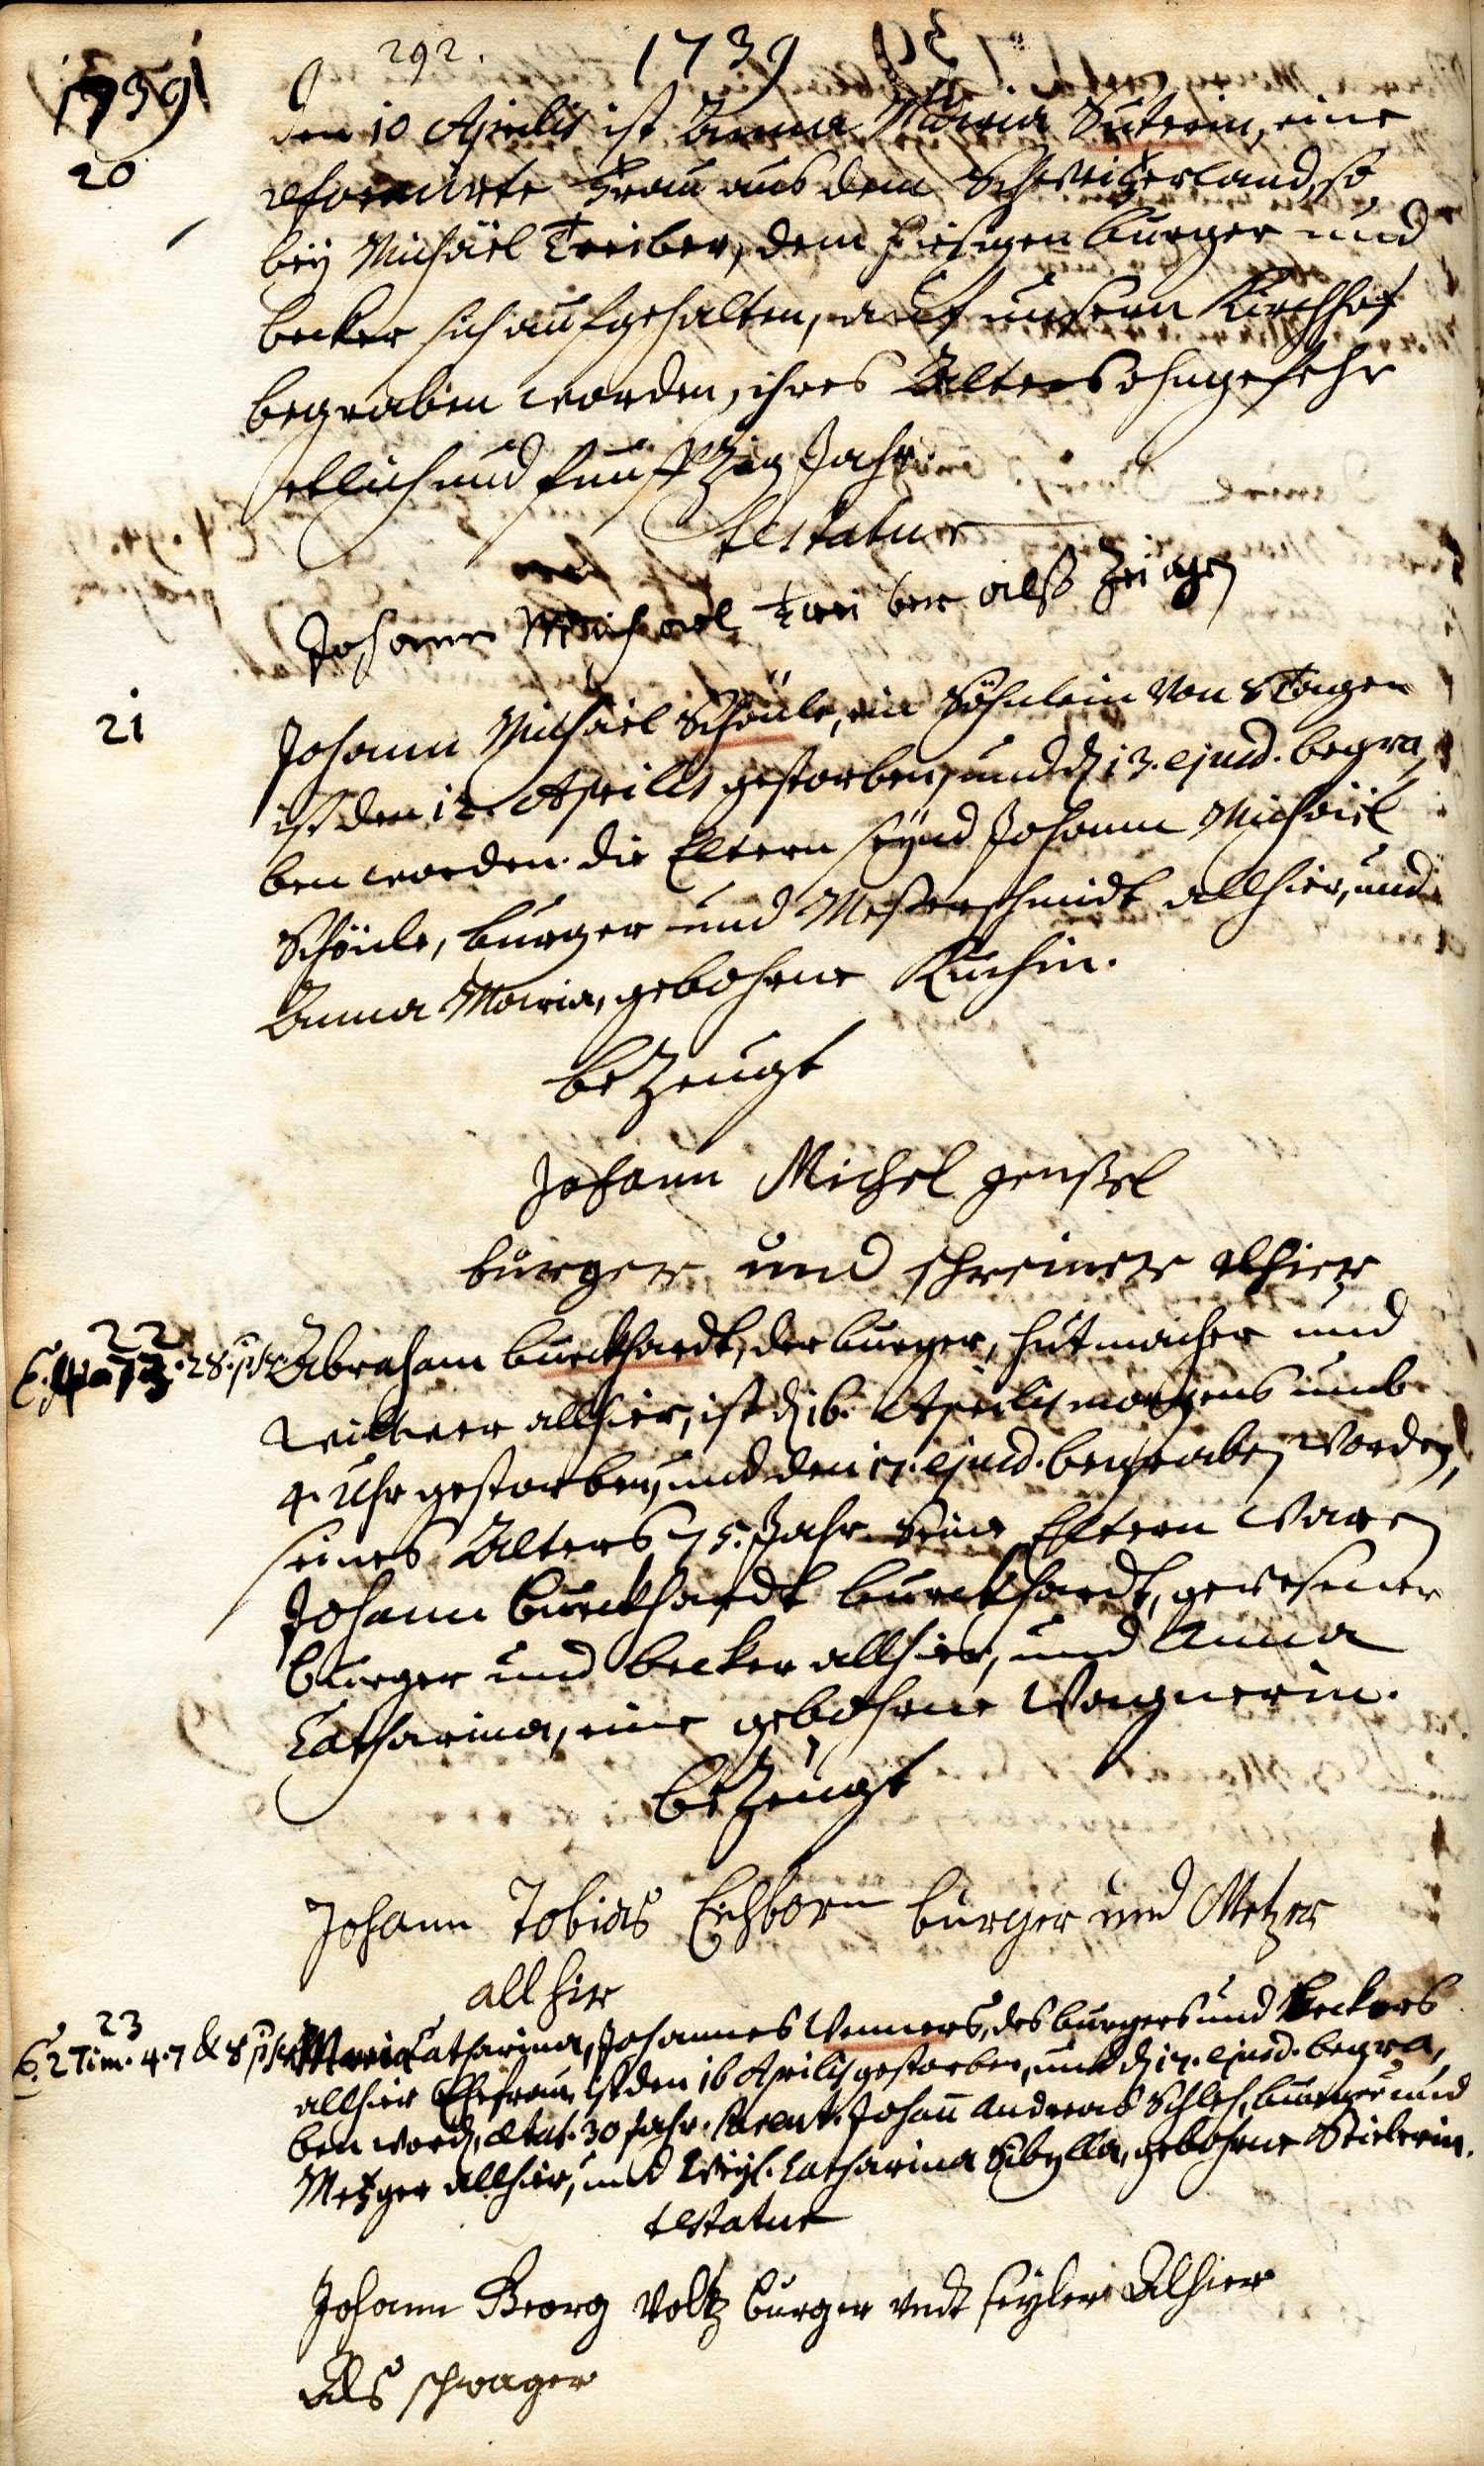 1739
292. 1739
20
den 10 Aprilis ist Anna Maria Suterin, eine
reformirte Frau aus dem Schweitzerland, so
bey Michaël Treiber, dem hiesigen burger und
becker sich aufgehalten, auf unsern Kirchhof
begraben worden, ihres Alters ohngefehr
etlich und funfftzig Jahr.
testatur
Johann Michael treiber alß Zeugen
21
Johann Michaël Schönle, ein Söhnlein von 8 Tagen
ist den 12. Aprilis gestorben, und d. 13. ejusd. begra,
ben worden. die Eltern seynd Johann Michaël
Schönle, burger und Messerschmidt allhier, und
Anna Maria, gebohrne Kuchin.
bezeugt
Johann Michel
burger und schreiner alhier
22
Abraham burckhardt, der burger, hutmacher und
Wittwer allhier, ist d. 16. Aprilis morgens umb
4. Uhr gestorben, und den 17. ejusd. begraben worden,
seines Alters 75. Jahr. Seine Eltern waren
Johann burckhardt burckhardt, gewesener
burger und becker allhier, und Anna
Catharina, eine gebohrne Wagnerin.
bezeugt
Johann Tobias Eichborn burger und Metzer
all hir
23
2 Tim. 4. 7 & 8
Maria Catharina, Johannes Wenners, des burgers und beckers
allhier Ehefrau, ist den 16 Aprilis gestorben, und d. 17. ejusd. begra,
ben word, ætat. 30 Jahr. Parent. Johann Andreas Schloh, burger und
Metzger allhier, und Weyl. Catharina Sibylla, gebohrne Stieberin.
testatur
Johann Georg Voltz burger undt seyler Alhier
Als schwager